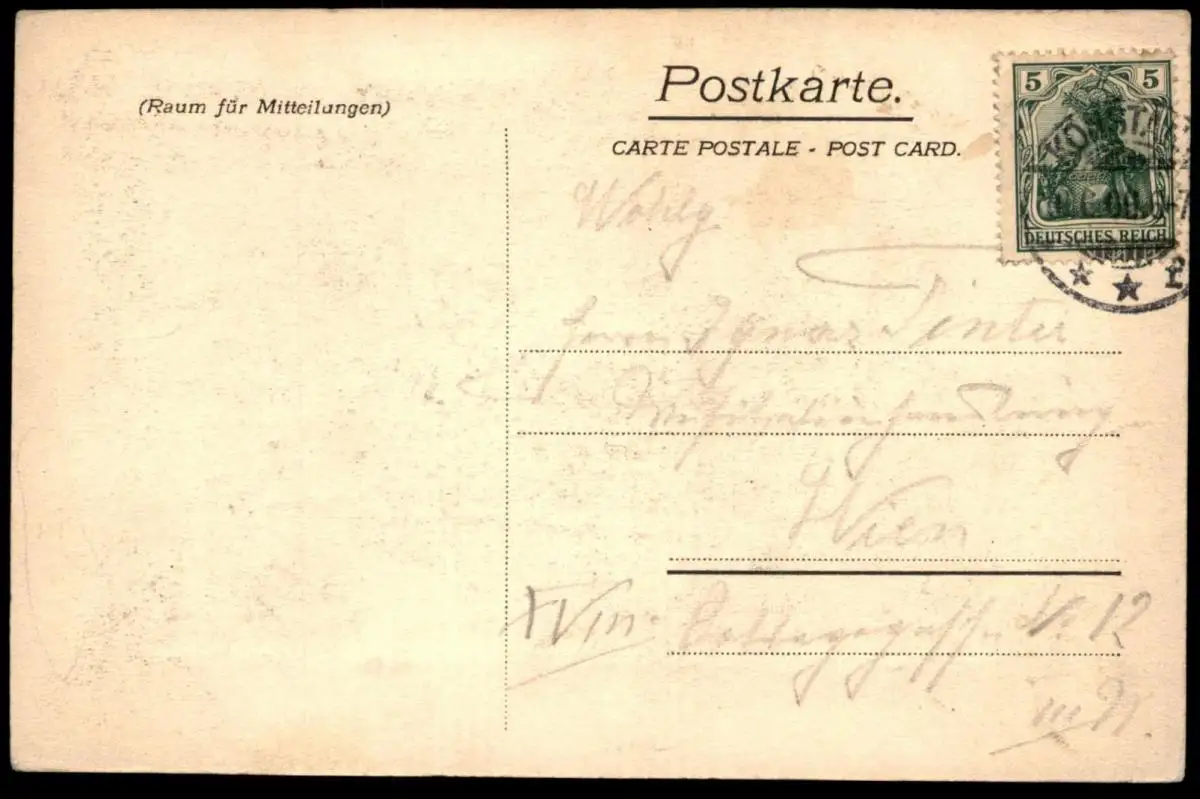 (Raum für Mitteilungen)
Postkarte.
CARTE POSTALE - POST CARD.
5 5
DEUTSCHES REICH
KONSTAN
Wohlg
Ignaz Pinter
Wien
XVIII. Cottagegasse No 12